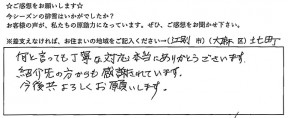 ☆ご感想をお願いします☆
今シーズンの除雪はいかがでしたか?
お客様の声が、私たちの原動力になっています。ぜひ、ご感想をお聞かせ下さい。
※差支えなければ、お住まいの地域をご記入ください→(江別 市)(大麻 区)北町
何と言っても丁寧な対応本当にありがとうございます。
紹介先の方からも感謝されています。
今後共よろしくお願いします。